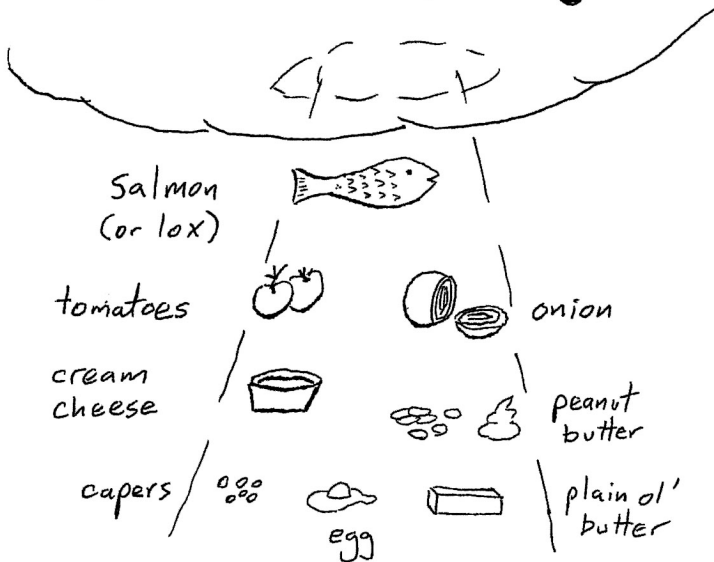 Salmon
(or lox)
tomatoes
onion
cream
cheese
peanut
butter
capers
egg
plain ol'
butter